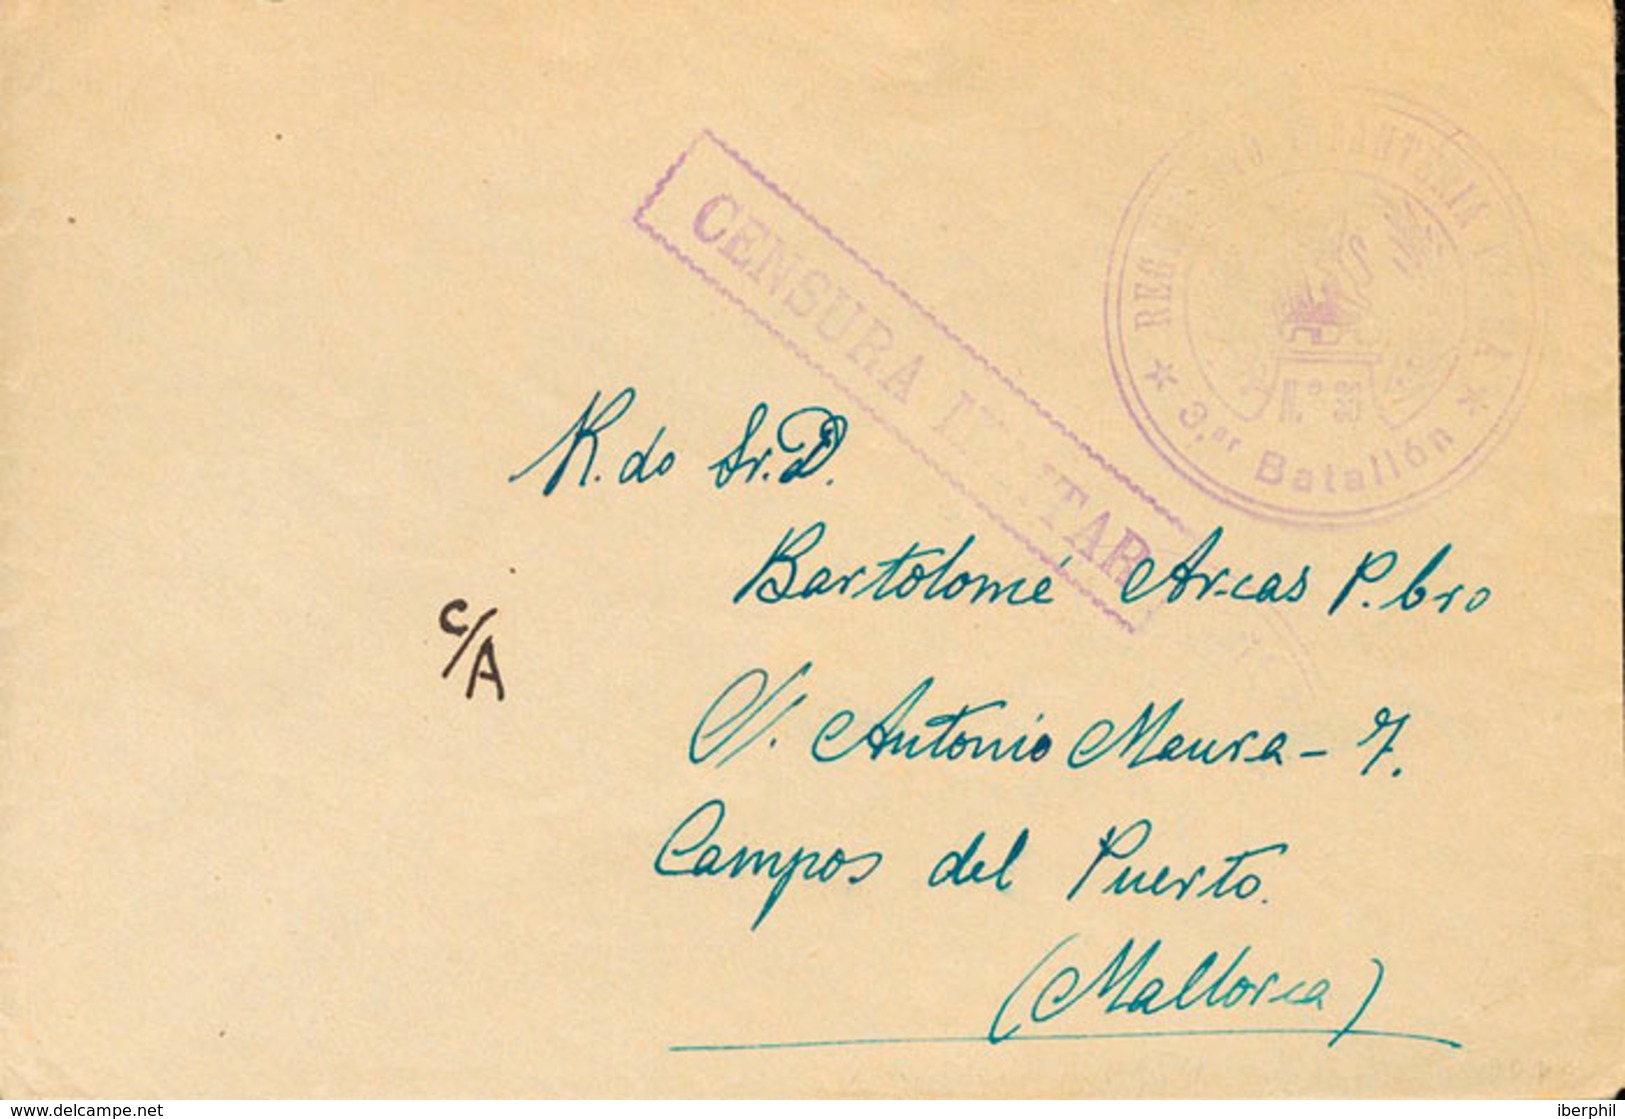 CENSURA MILITAR
REGIMIENTO INFANTERIA
N.º 36
3.er Batallón
R.do Sr. D.
Bartolomé Arcas P.bro
C/A
C/. Antonio Maura - 7.
Campos del Puerto.
(Mallorca)
www.delcampe.net
iberphil